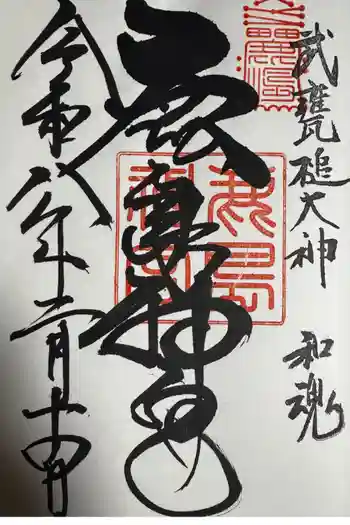 武甕槌大神　和魂
鹿島神宮
令和八年二月十四日